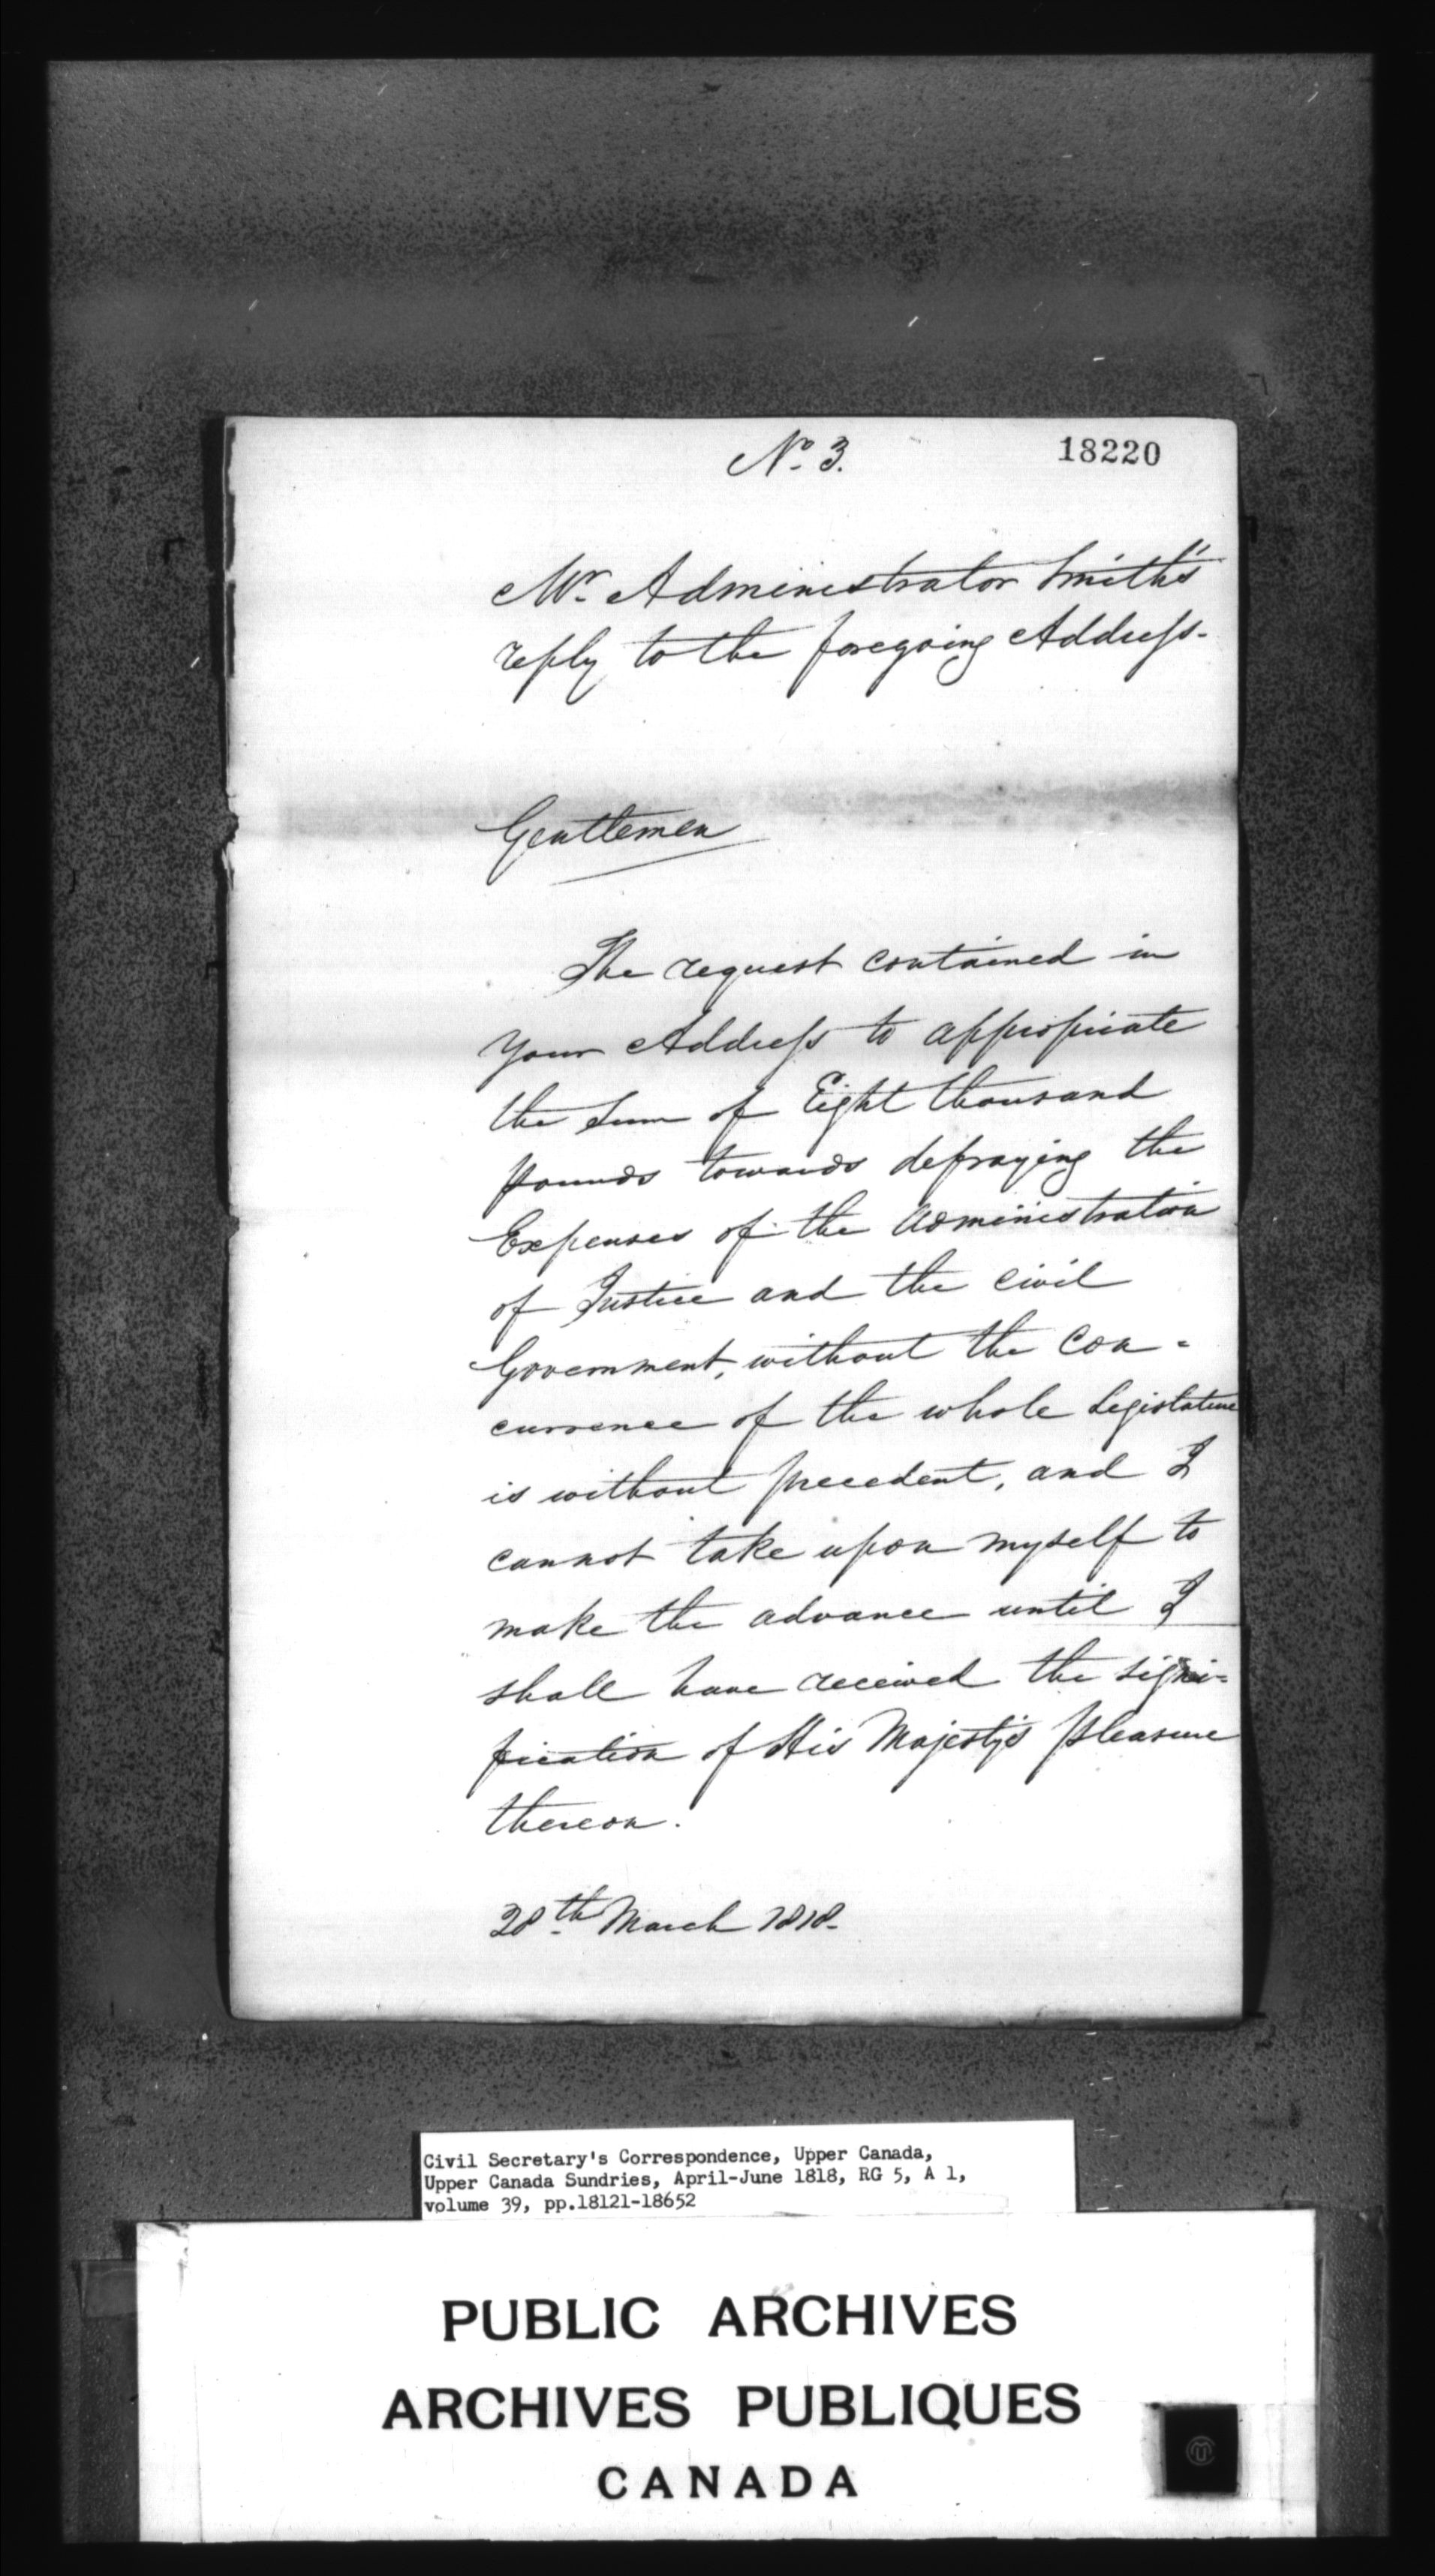 No. 3.
18220
Mr. Administrator Smith's
reply to the foregoing Address.
Gentlemen
The request contained in
your Address to appropriate
the Sum of Eight thousand
pounds towards defraying the
Expenses of the administration
of Justice and the Civil
Government, without the Con-
currence of the whole Legislature
is without precedent, and I
cannot take upon myself to
make the advance until I
shall have received the signi-
fication of His Majesty's pleasure
thereon.
28th March 1818.
Civil Secretary's Correspondence, Upper Canada,
Upper Canada Sundries, April-June 1818, RG 5, A 1,
volume 39, pp.18121-18652
PUBLIC ARCHIVES
ARCHIVES PUBLIQUES
CANADA